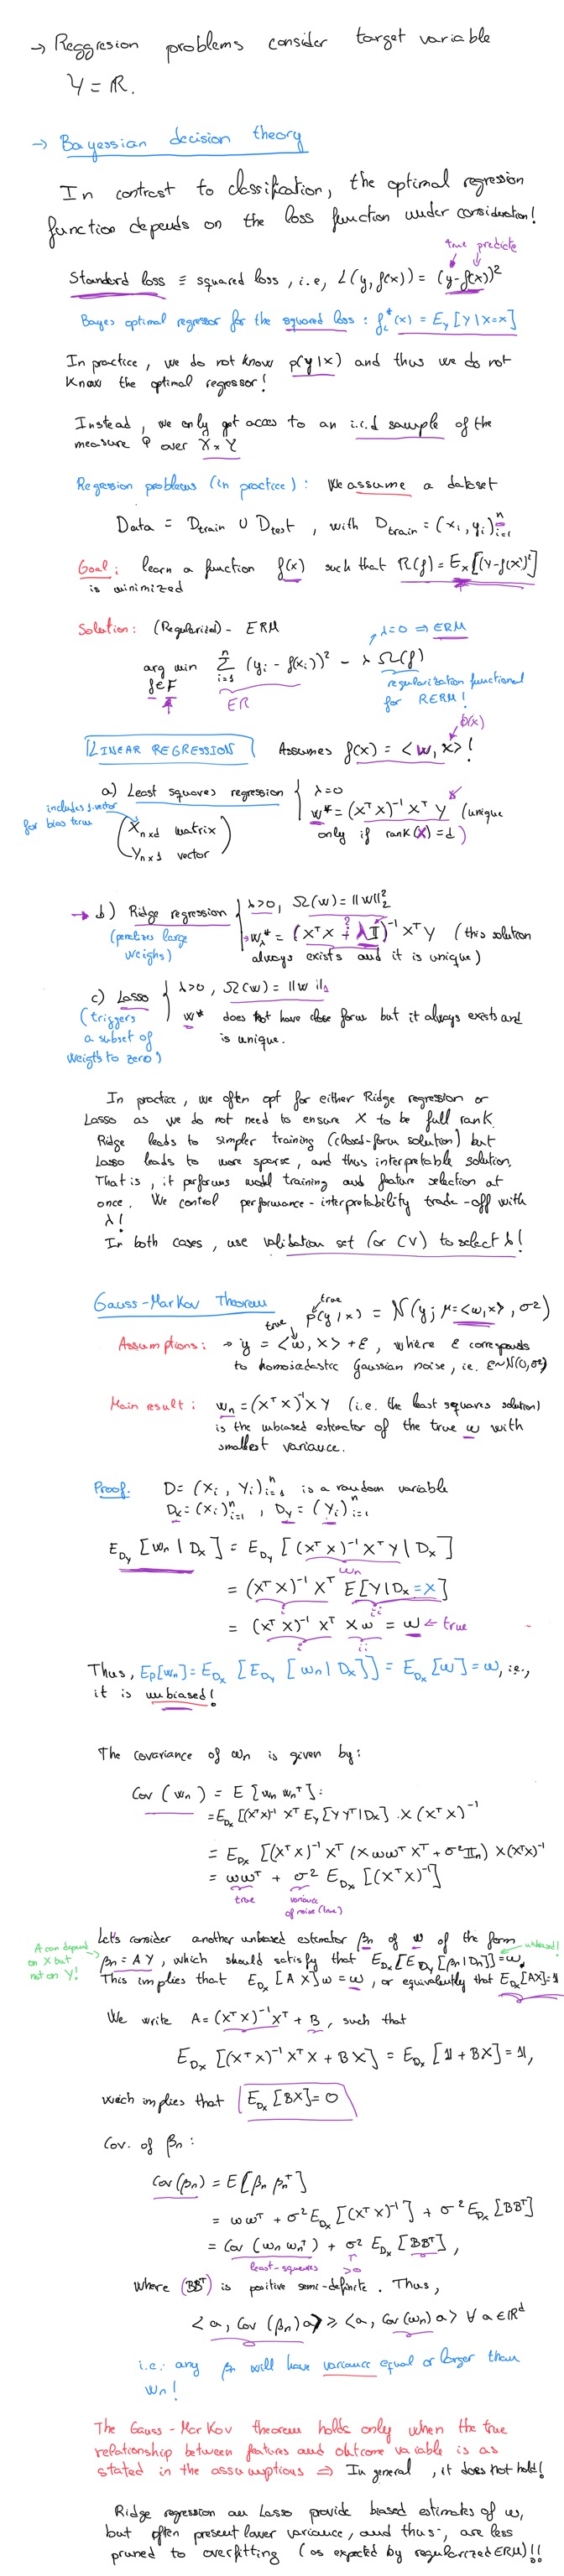 → Reggresion problems consider target variable
Y = ℝ.
→ Bayessian decision theory
In contrast to classification, the optimal regression
function depends on the loss function under consideration!
true predicte
Standard loss ≡ squared loss, i.e, L(y, f(x)) = (y-f(x))²
Bayes optimal regressor for the squared loss: f*_L(x) = E_Y[Y|X=x]
In practice, we do not know p(y|x) and thus we do not
know the optimal regressor!
Instead, we only get acces to an i.i.d sample of the
measure P over X×Y
Regression problems (in practice): We assume a dataset
Data = Dtrain ∪ Dtest, with Dtrain = (xᵢ, yᵢ)ⁿᵢ₌₁
Goal: learn a function f(x) such that R(f) = E_X[(Y-f(x))²]
is minimized
Solution: (Regularized)- ERM
λ=0 ⇒ ERM
arg min Σⁿᵢ₌₁ (yᵢ - f(xᵢ))² - λ Ω(f)
f∈F
ER
regularization functional
for RERM!
ϕ(x)
LINEAR REGRESSION Assumes f(x) = <w, x>!
a) Least squares regression { λ=0
w* = (XᵀX)⁻¹ XᵀY (unique
only if rank(X) = d)
includes 1-vector
for bias term
(X_{n×d} matrix
Y_{n×1} vector)
→ b) Ridge regression { λ>0, Ω(w) = ||w||²₂
(penalizes large
weighs)
w*_λ = (XᵀX + λ𝕀)⁻¹ XᵀY (this solution
always exists and it is unique)
c) Lasso { λ>0, Ω(w) = ||w||₁
(triggers
a subset of
weigths to zero!)
w* does not have close form but it always exists and
is unique.
In practice, we often opt for either Ridge regression or
Lasso as we do not need to ensure X to be full rank.
Ridge leads to simpler training (closed-form solution) but
Lasso leads to more sparse, and thus interpretable solution.
That is, it performs model training and feature selection at
once. We control performance-interpretability trade-off with
λ!
In both cases, use validation set (or CV) to select λ!
Gauss-Markov Theorem
true
p(y|x) = N(y; μ=<w,x>, σ²)
true
Assumptions: → y = <w, x> + ε, where ε corresponds
to homoscedastic Gaussian noise, i.e. ε~N(0,σ²)
Main result: wₙ = (XᵀX)⁻¹XY (i.e. the least squares solution)
is the unbiased estimator of the true w with
smallest variance.
Proof. D = (Xᵢ, Yᵢ)ⁿᵢ₌₁ is a random variable
Dₓ = (xᵢ)ⁿᵢ₌₁, D_y = (Yᵢ)ⁿᵢ₌₁
E_{Dy}[wₙ|Dₓ] = E_{Dy}[(XᵀX)⁻¹XᵀY|Dₓ]
wₙ
= (XᵀX)⁻¹Xᵀ E[Y|Dₓ=X]
i ii
= (XᵀX)⁻¹Xᵀ Xw = w ← true
i ii
Thus, E_D[wₙ] = E_{Dₓ}[E_{Dy}[wₙ|Dₓ]] = E_{Dₓ}[w] = w, i.e.,
it is unbiased!
The covariance of wₙ is given by:
Cov(wₙ) = E[wₙwₙᵀ]:
= E_{Dₓ}[(XᵀX)⁻¹Xᵀ E_Y[YYᵀ|Dₓ] · X(XᵀX)⁻¹
= E_{Dₓ}[(XᵀX)⁻¹Xᵀ(XwwᵀXᵀ+σ²𝕀ₙ)X(XᵀX)⁻¹
= wwᵀ + σ² E_{Dₓ}[(XᵀX)⁻¹]
true variance
of noise (true)
A can depend
on X but
not on Y!
Let's consider another unbiased estimator βₙ of w of the form
unbiased!
βₙ = AY, which should satisfy that E_{Dₓ}[E_{Dy}[βₙ|Dₙ]] = w.
This implies that E_{Dₓ}[AX]w = w, or equivalently that E_{Dₓ}[AX] = 𝟙
We write A = (XᵀX)⁻¹Xᵀ + B, such that
E_{Dₓ}[(XᵀX)⁻¹XᵀX + BX] = E_{Dₓ}[𝟙 + BX] = 𝟙,
wich implies that E_{Dₓ}[BX] = 0
Cov. of βₙ:
Cov(βₙ) = E[βₙβₙᵀ]
= wwᵀ + σ²E_{Dₓ}[(XᵀX)⁻¹] + σ²E_{Dₓ}[BBᵀ]
= Cov(wₙwₙᵀ) + σ² E_{Dₓ}[BBᵀ],
least-squares >0
where (BBᵀ) is positive semi-definite. Thus,
<a, Cov(βₙ)a> ≥ <a, Cov(wₙ)a> ∀ a∈ℝᵈ
i.e.: any βₙ will have variance equal or larger than
wₙ!
The Gauss-Markov theorem holds only when the true
relationship between features and outcome variable is as
stated in the assumptions ⇒ In general, it does not hold!
Ridge regression an Lasso provide biased estimates of w,
but often present lower variance, and thus, are less
pruned to overfitting (as expected by regularized ERM)!!